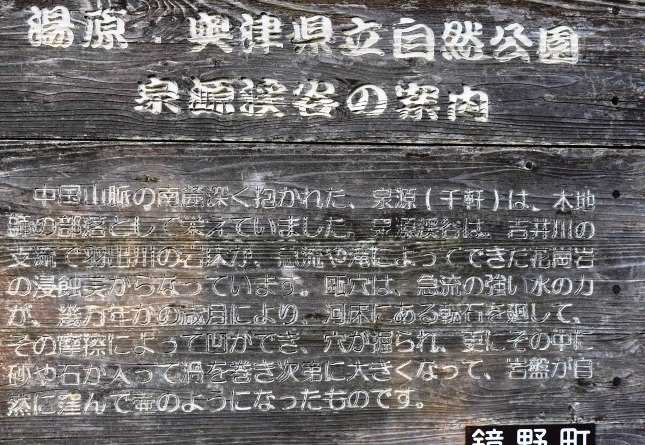 湯原・奥津県立自然公園
泉源渓谷の案内
中国山脈の南麓深く抱かれた、泉源(千軒)は、木地
師の部落として栄えていました。泉源渓谷は、吉井川の
支流で羽出川の が、急流や滝によってできた花崗岩
の浸蝕 からなっています。甌穴は、急流の強い水の力
が、幾万年かの歳月により、河床にある転石を廻して、
その摩擦によって凹ができ、穴が掘られ、更にその中に
砂や石が入って渦を巻き次第に大きくなって、岩盤が自
然に窪んで壷のようになったものです。
鏡野町